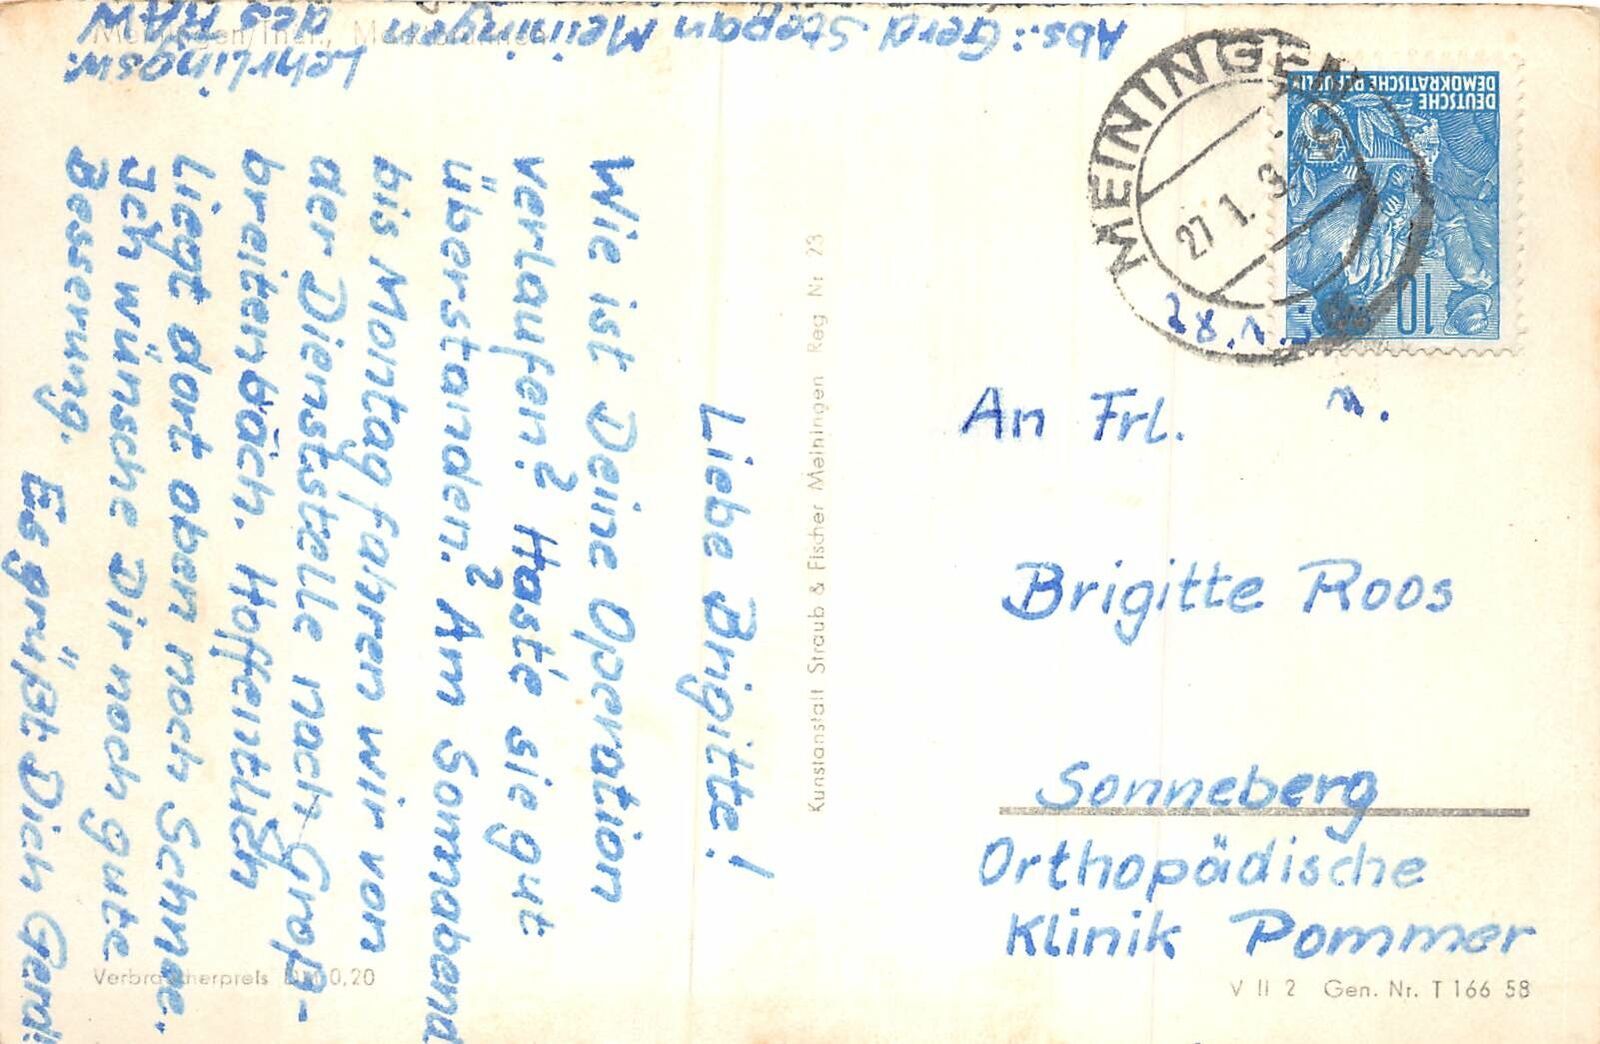 Abs.: Gerd Stepan Meiningen
Lehrlingsw. des RAW
Liebe Brigitte!
Wie ist Deine Operation
verlaufen? Haste sie gut
überstanden? Am Sonnabend
bis Montag fahren wir von
der Dienststelle nach Groß-
breitenbach. Hoffentlich
liegt dort oben noch Schnee.
Ich wünsche Dir noch gute
Besserung.
Es grüßt Dich Gerd!
Kunstanstalt Straub & Fischer Meiningen Reg Nr 23
Verbraucherpreis DM 0,20
DEUTSCHE
DEMOKRATISCHE REPUBLIK
10
MEININGEN
27.1.
An Frl.
Brigitte Roos
Sonneberg
Orthopädische
Klinik Pommer
V II 2 Gen. Nr. T 166 58